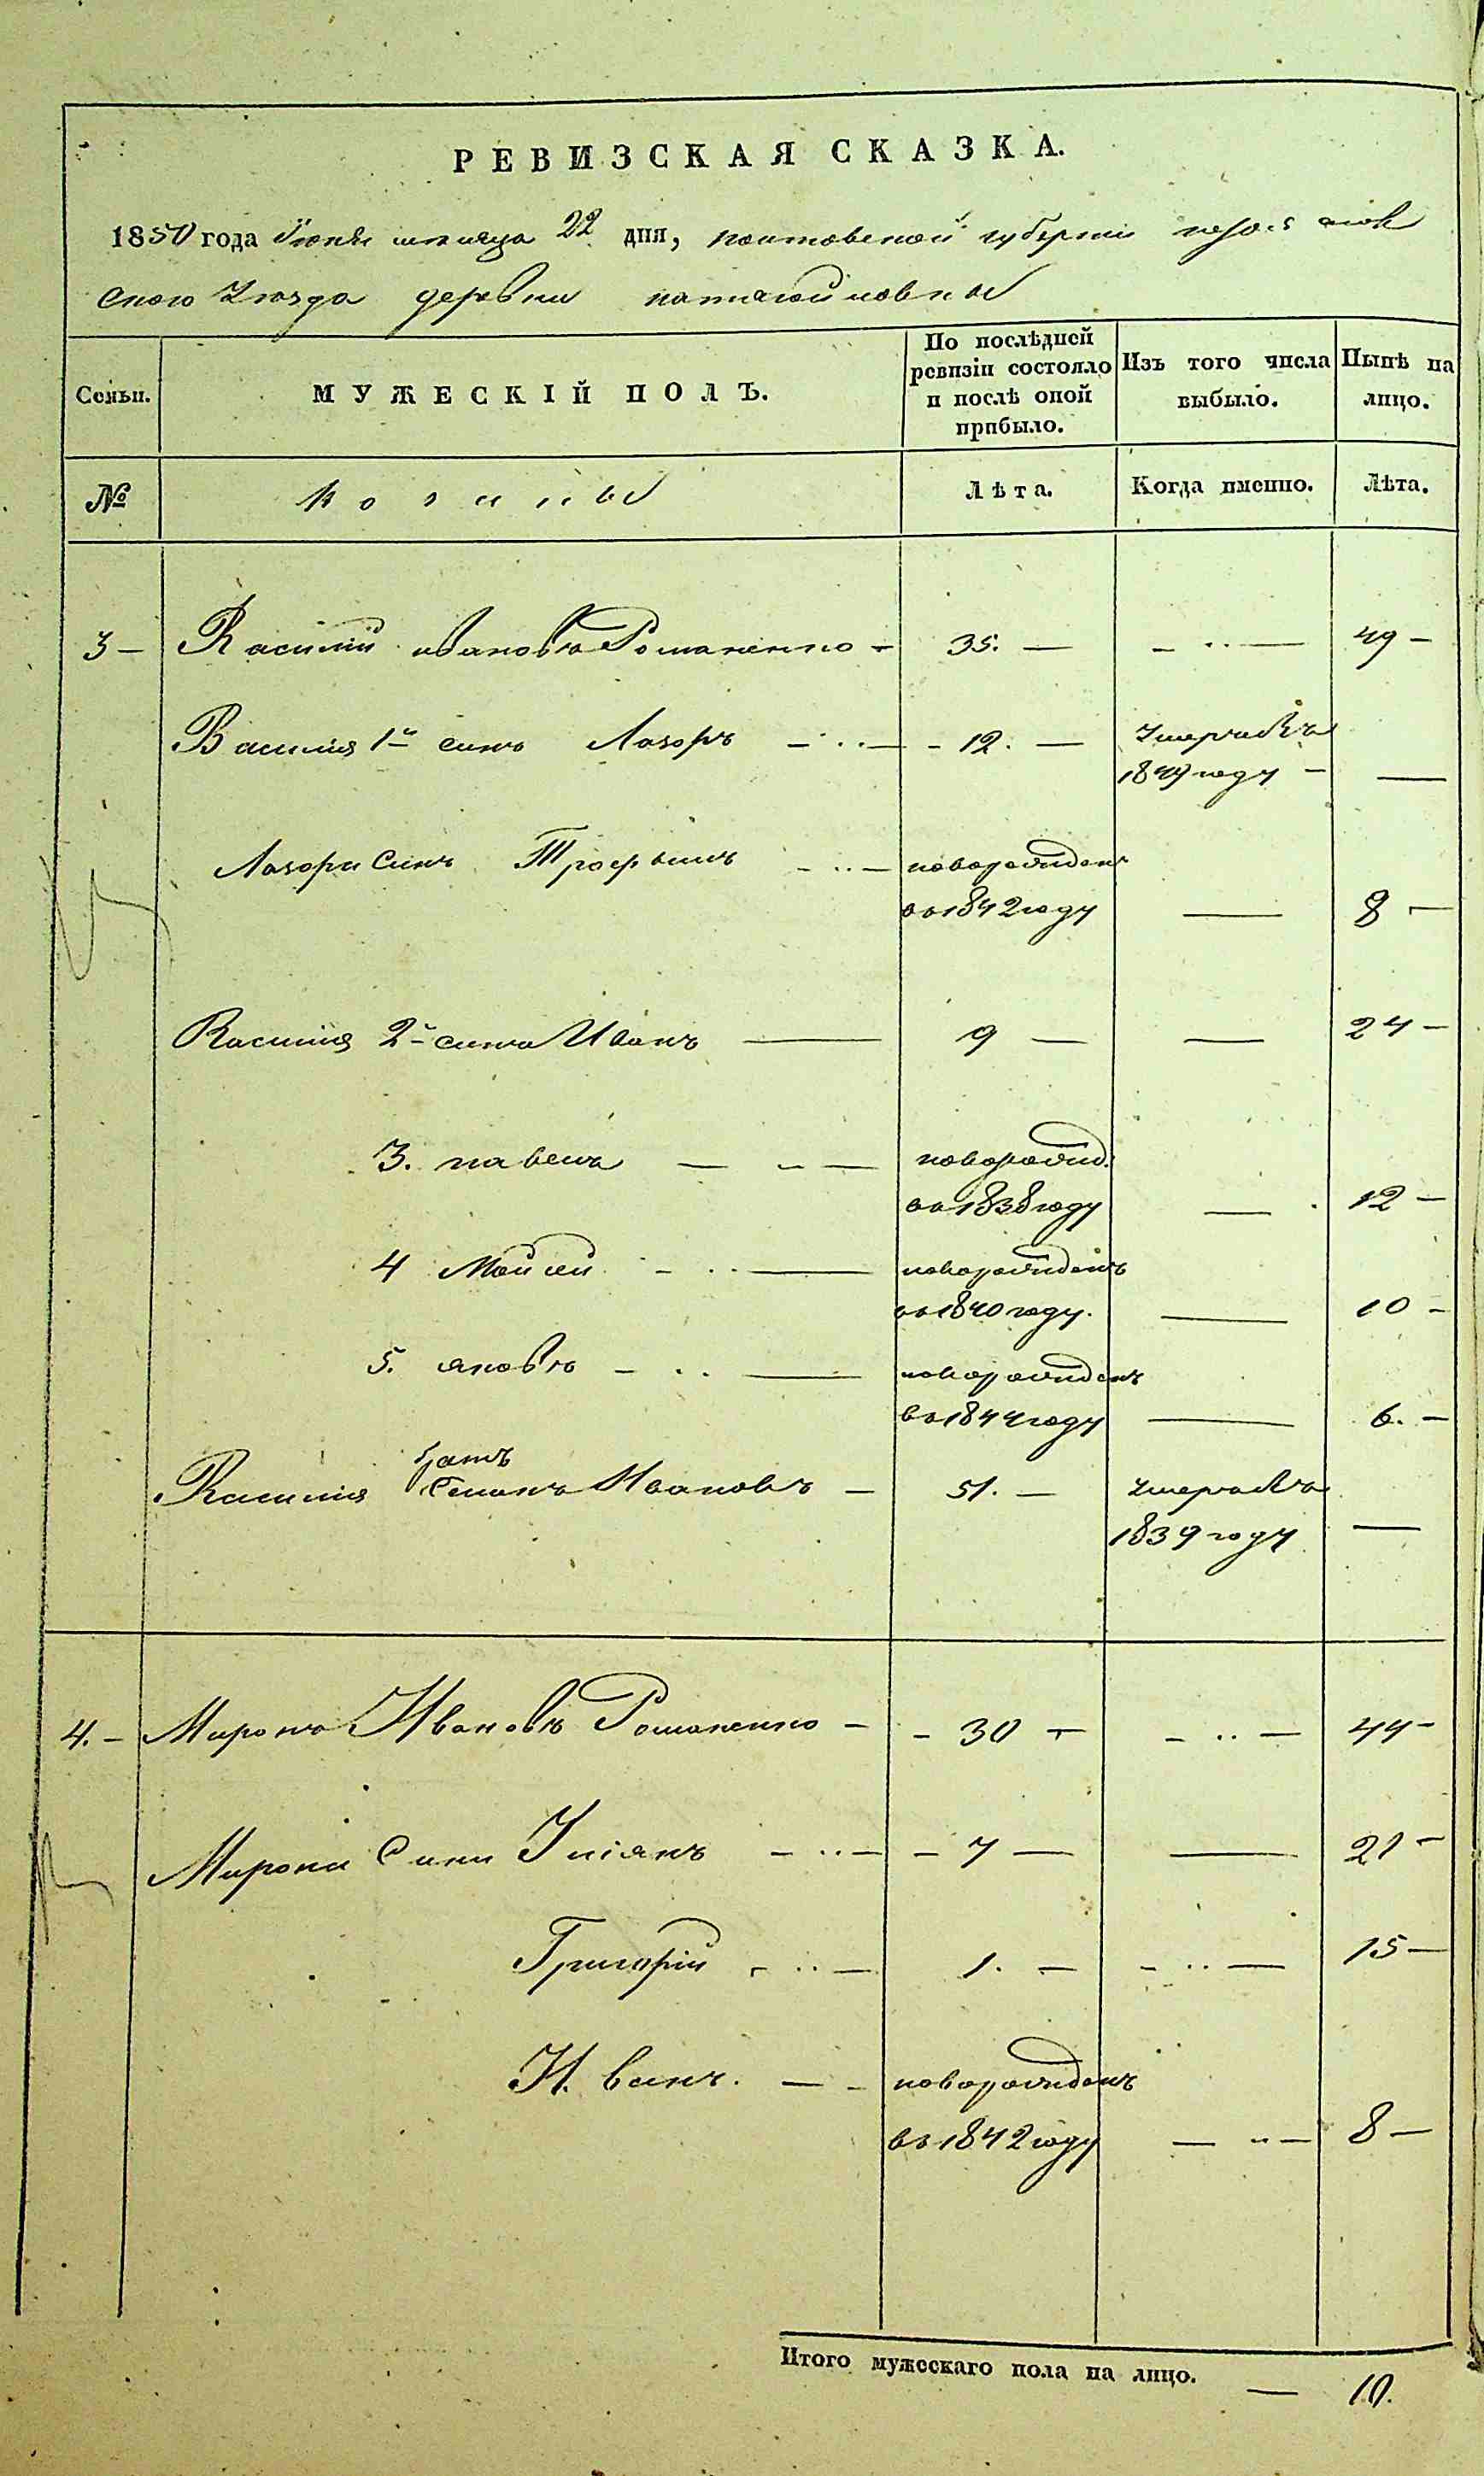 РЕВИЗСКАЯ СКАЗКА.
1850 года Июня месяца 22 дня, полтавской губернии
ского уезда деревни
Семьи. МУЖЕСКІЙ ПОЛЪ. По послѣдней ревизіи состояло и послѣ оной прибыло. Изъ того числа выбыло. Нынѣ на лицо.
№ козаки Лѣта. Когда именно. Лѣта.
3 — Василий ивановъ Романенко — 35. — — 49 —
Василия 1й синъ Лазоръ — 12. — умерший въ
1849 году — —
Лазоря Синъ Трофымъ — новорожденъ
въ 1842 году — 8 —
Василия 2й синъ Иванъ — 9 — — 24 —
3. павелъ — новорожд.
въ 1838 году — 12 —
4 Мойсей — новорожденъ
въ 1840 году. — 10 —
5. яковъ — новорожденъ
въ 1844 году — 6. —
братъ
Василия Семенъ Ивановъ — 51. —
1839 году —
4. — Миронъ Ивановъ Романенко — 30 — — 44 —
Мирона Сини Улiянъ — 7 — — 21 —
Григорий — 1. — — 15 —
новорожденъ
въ 1842 году — 8 —
Итого мужескаго пола на лицо. — 10.